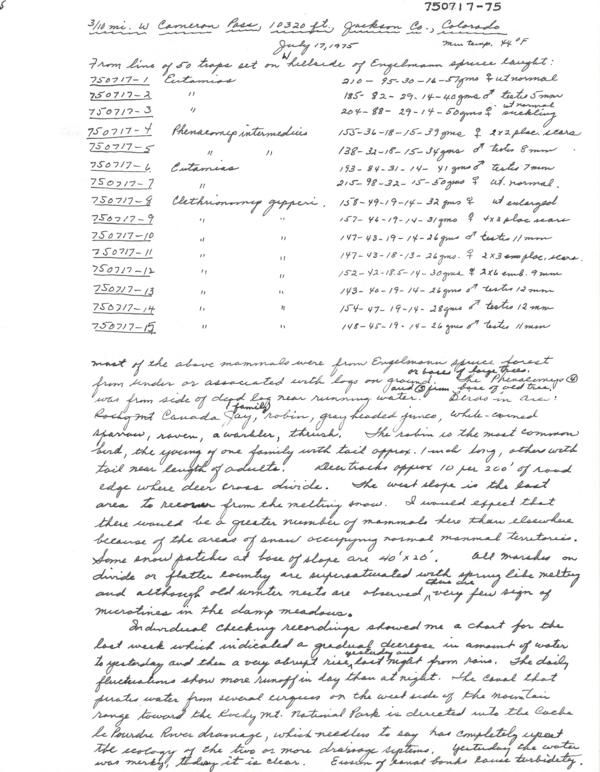 750717-75
3/10 mi. W Cameron Pass, 10320 ft., Jackson Co., Colorado
July 17, 1975 Min temp. 44°F
From line of 50 traps set on W hillside of Engelmann spruce caught:
750717-1 Eutamias 210-95-30-16-57gms ♀ ut normal
750717-2 " 185-82-29-14-40gms ♂ testes 5mm
750717-3 " 204-88-29-14-50gms ♀ ut normal suckling
750717-4 Phenacomys intermedius 155-36-18-15-39gms ♀ 2x2 plac. scars
750717-5 " " 138-32-18-15-34gms ♂ testes 8mm
750717-6 Eutamias 193-84-31-14-41gms ♂ testes 7mm
750717-7 " 215-98-32-15-50gms ♀ ut. normal.
750717-8 Clethrionomys gapperi. 158-49-19-14-32gms ♀ ut enlarged
750717-9 " " 157-46-19-14-31gms ♀ 4x2 plac scars
750717-10 " " 147-43-19-14-26gms ♂ testes 11mm
750717-11 " " 147-43-18-13-26gms. ♀ 2x3 sm plac. scars.
750717-12 " " 152-42-18.5-14-30gms ♀ 2x6 emb. 9mm
750717-13 " " 143-40-19-14-26gms ♂ testes 12mm
750717-14 " " 154-47-19-14-28gms ♂ testes 12mm
750717-15 " " 148-45-19-14-26gms ♂ testes 11mm
most of the above mammals were from Engelmann spruce forest
from under or associated with logs on ground. or bases of large trees. The Phenacomys ④
was from side of dead log near running water. and ⑤ from base of old tree. Birds in are:
Rocky Mt Canada Jay, (family) robin, grayheaded junco, white-crowned
sparrow, raven, a warbler, thrush. The robin is the most common
bird, the young of one family with tail approx. 1-inch long, others with
tail near length of adults. Deer tracks approx 10 per 200' of road
edge where deer cross divide. The west slope is the last
area to recover from the melting snow. I would expect that
there would be a greater number of mammals here than elsewhere
because of the areas of snow occupying normal mammal territories.
Some snow patches at base of slope are 40'x20'. All marshes on
divide or flatter country are supersaturated with spring like melting
and although old winter nests are observed, there are very few sign of
microtines in the damp meadows.
Individual checking recordings showed me a chart for the
last week which indicated a gradual decrease in amount of water
to yesterday and then a very abrupt rise, yesterday and last night from rain. The daily
fluctuations show more runoff in day than at night. The canal that
pirates water from several cirques on the west side of the mountain
range toward the Rocky Mt. National Park is directed into the Cache
le Poudre River drainage, which needless to say has completely upset
the ecology of the two or more drainage systems. Yesterday the water
was murky, today it is clear. Erosion of canal banks cause turbidity.